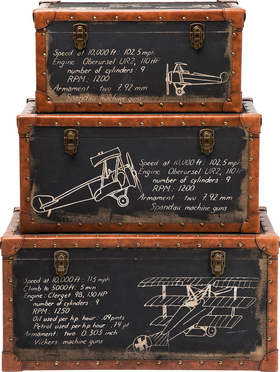 Speed at 10,000 ft: 102.5 mpl
Engine Oberursel UR2, 110 HP
number of cylinders: 9
RPM: 1200
Armament - two 7.92 mm
Spandau machine guns
Speed at 10,000 ft: 102.5 mpl
Engine Oberursel UR2, 110 H
number of cylinders: 9
RPM: 1200
Armament - two 7.92 mm
Spandau machine guns
Speed at 10,000ft: 115 mph
Climb to 5000ft: 5 min
Engine: Clerget 9B, 130 HP
number of cylinders: 9
RPM: 1250
Oil used per h.p. hour: .09 pints
Petrol used per h.p. hour: .74 pt
Armament: two 0.303 inch
Vickers machine guns